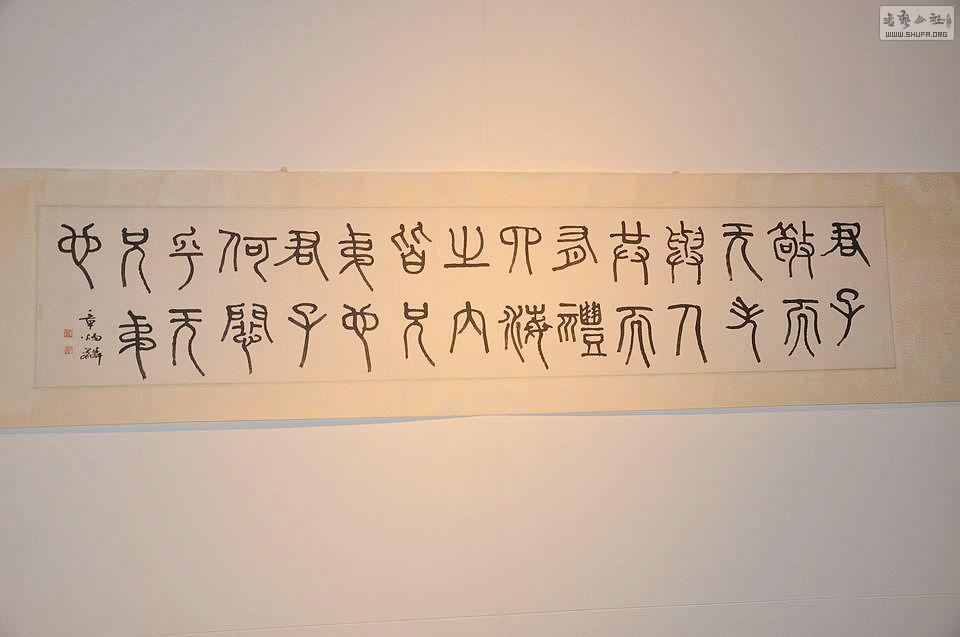 君子
敬而
无失
與人
共而
有禮
四海
之内
皆兄
弟也
君子
何患
乎无
兄弟
也
章炳麟
书艺公社
WWW.SHUFA.ORG